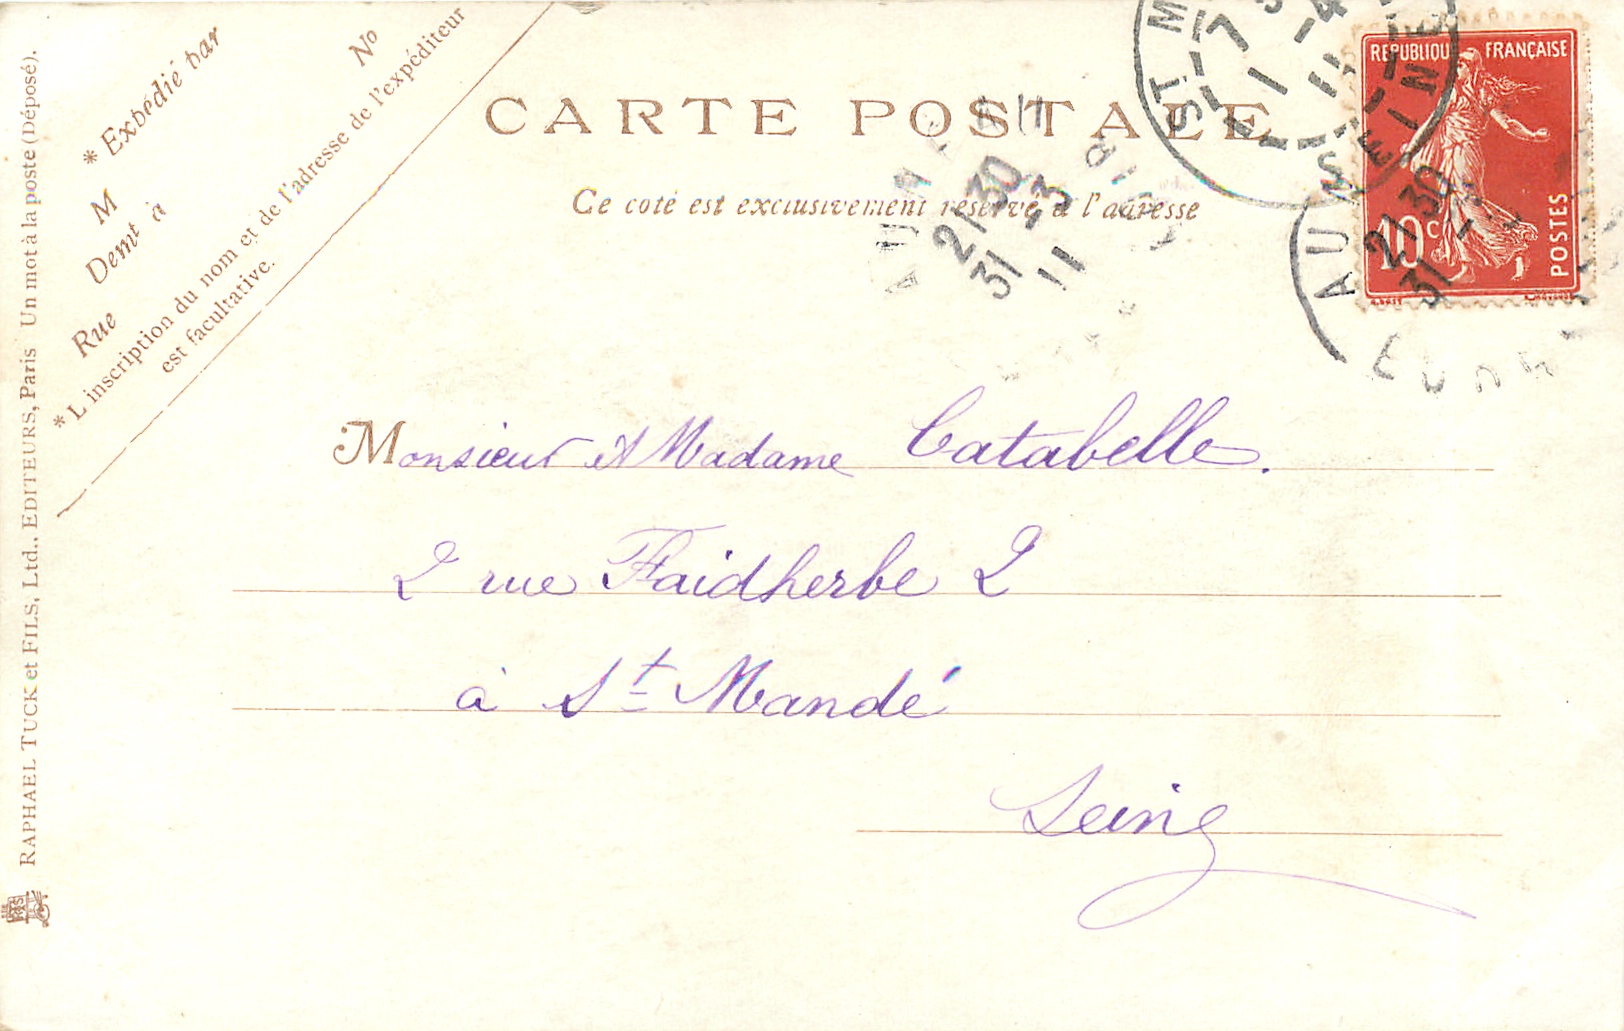 * Expédié par
M
Demt à
Rue
No
* L inscription du nom et de l'adresse de l'expéditeur
est facultative.
RAPHAEL TUCK et FILS, Ltd., EDITEURS, Paris Un mot à la poste (Déposé).
CARTE POSTALE
Ce coté est exclusivement réservé à l'adresse
ST M
SEINE
7
1 -4
11
REPUBLIQUE FRANÇAISE
10c
POSTES
AUM
21 30
31 -3
11
AUM
21 30
31
Monsieur et Madame Catabelle.
2 rue Faidherbe 2
à St Mandé
Seine